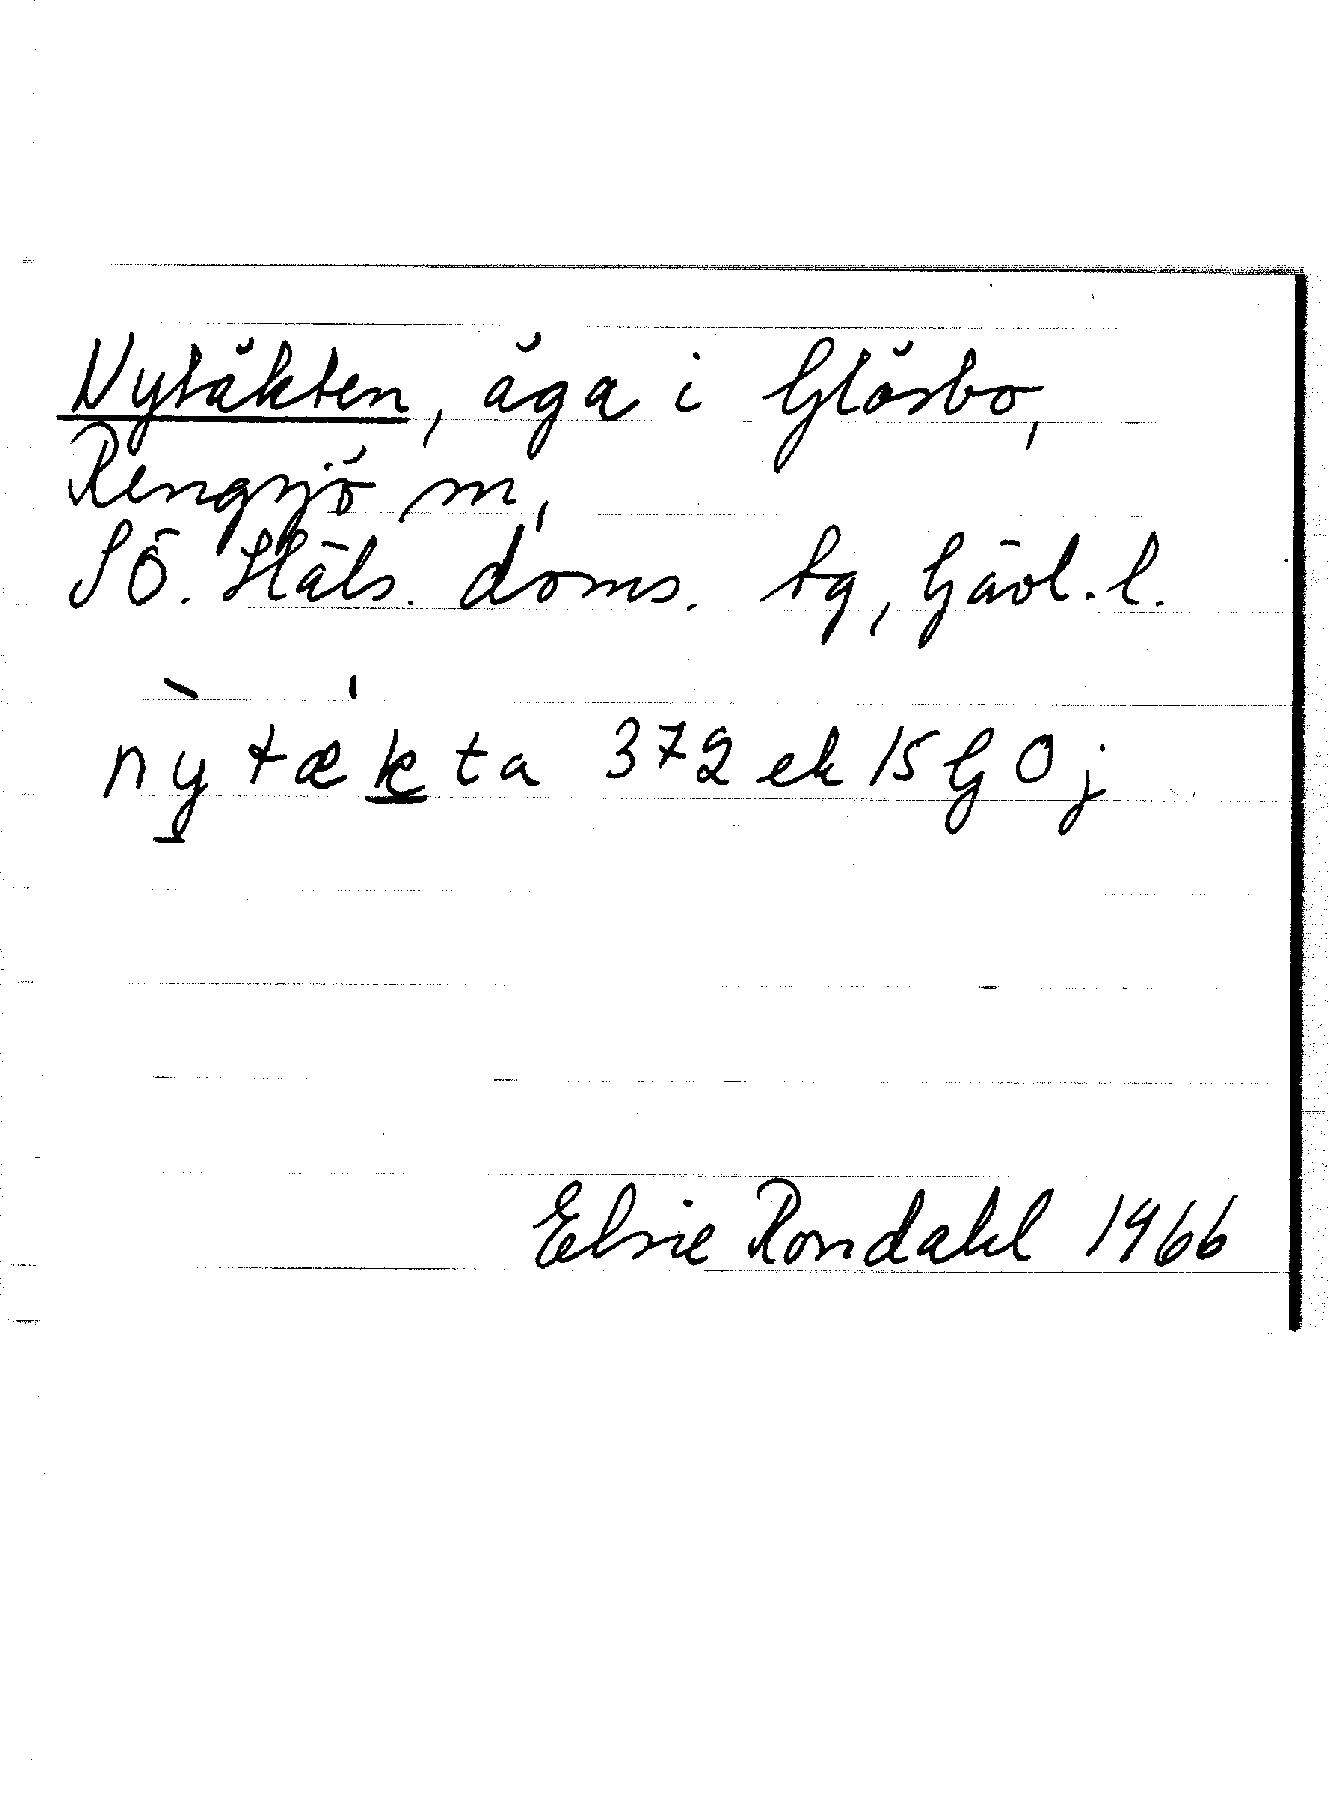 Nytäkten, äga i Glösbo,
Rengsjö sn,
SÖ. Häls. doms. tg, Gävl. l.
nỳ̠ tæ´k̠ ta 372 ek 15 G O j
Elsie Rondahl 1966